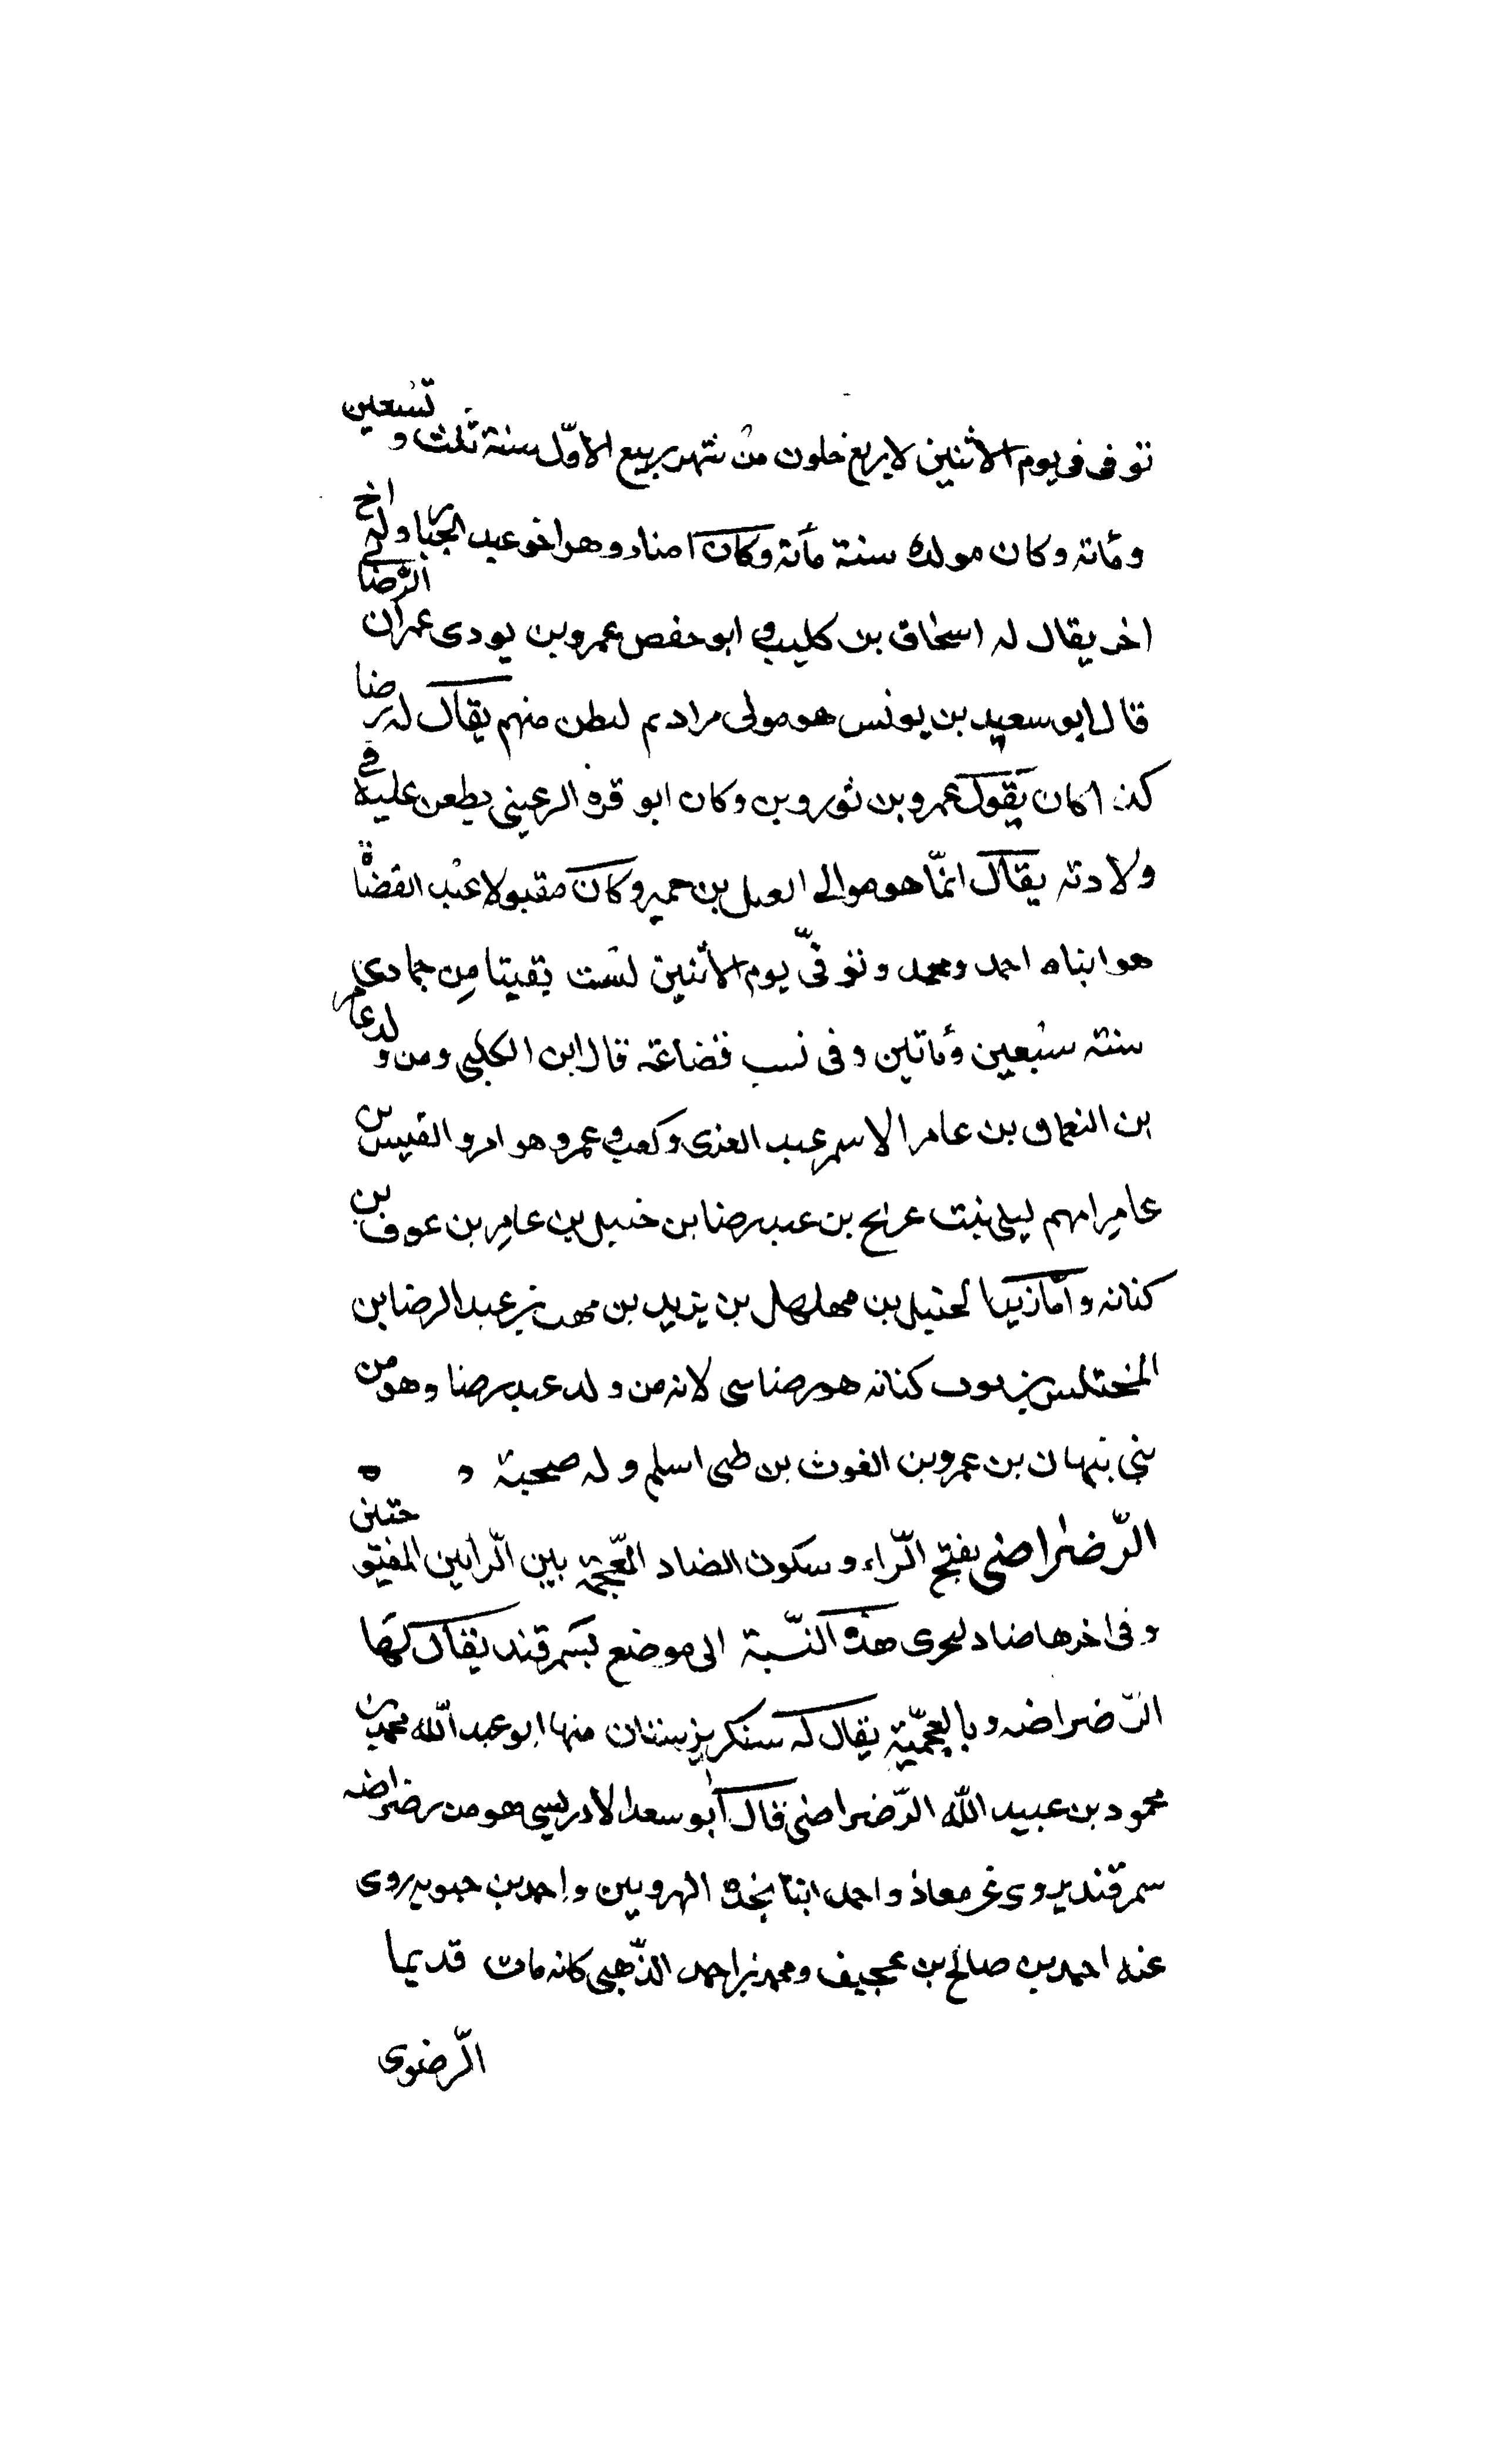 توفى فى يوم الاثنين لاربع خلون من شهر ربيع الاوّل سنة ثلث وتسعين
ومأتة وكان مولده سنة مأتة وكان اصناد وهو اخو عبد الجبار وله اخ
اخر يقال له اسحاق بن كليب وابو حفص عمرو بن يودى عمران الرضائى
قال ابو سعيد بن يونس هو مولى مرادم لبطن منهم يقال له رضا
كذا كان يقول عمرو بن ثور وبن وكان ابو قرة الرعينى يطعن عليه فى
ولادته يقال انمّا هو موالى العبل بن حمير وكان مقبولا عند القضاة
هو ابناه احمد ومحمد وتوفىّ يوم الاثنين لست بقيتا من جمادى
سنته سبعين ومأتين وفى نسب قضاعة قال ابن الكلبى ومن ولد عامر
ابن النعمان بن عامر الاسم عبد العزى وكعب وعمرو وهو امرو القيس بن
عامر امهم ليلى بنت عريج بن عبد رضا بن حنبل بن عامر بن عوف بن
كنانه وامّا زيد الحنبل بن مهلهل بن يزيد بن مهب بن عبد الرضا بن
المختلس بن بوب كنانه هو رضاسى لانه من ولد عبد رضا وهو من
بنى نبهان بن عمرو بن الغوث بن طى اسلم وله صحبة ه ه
الرّضراضى بفتح الرّاء وسكون الضاد المعّجمة بين الرّايين المفتوحتين
وفى اخرها ضاد لحرى هذه النسّبة الى موضع بسمرقند يقال لها
الرّضراضه وبالعجميّة يقال له سنكريزستان منها ابو عبد الله محمد بن
محمود بن عبيد الله الرّضراضى قال ابو سعد الادريسى هو من رضراضه
سمرقند يروى عن معاذ واحمد ابنا نجدة الهرويين واحمد بن حبويه روى
عنه احمد بن صالح بن عجيف ومحمد بن احمد الذّهبى كانه مات قديما
الرّضوى